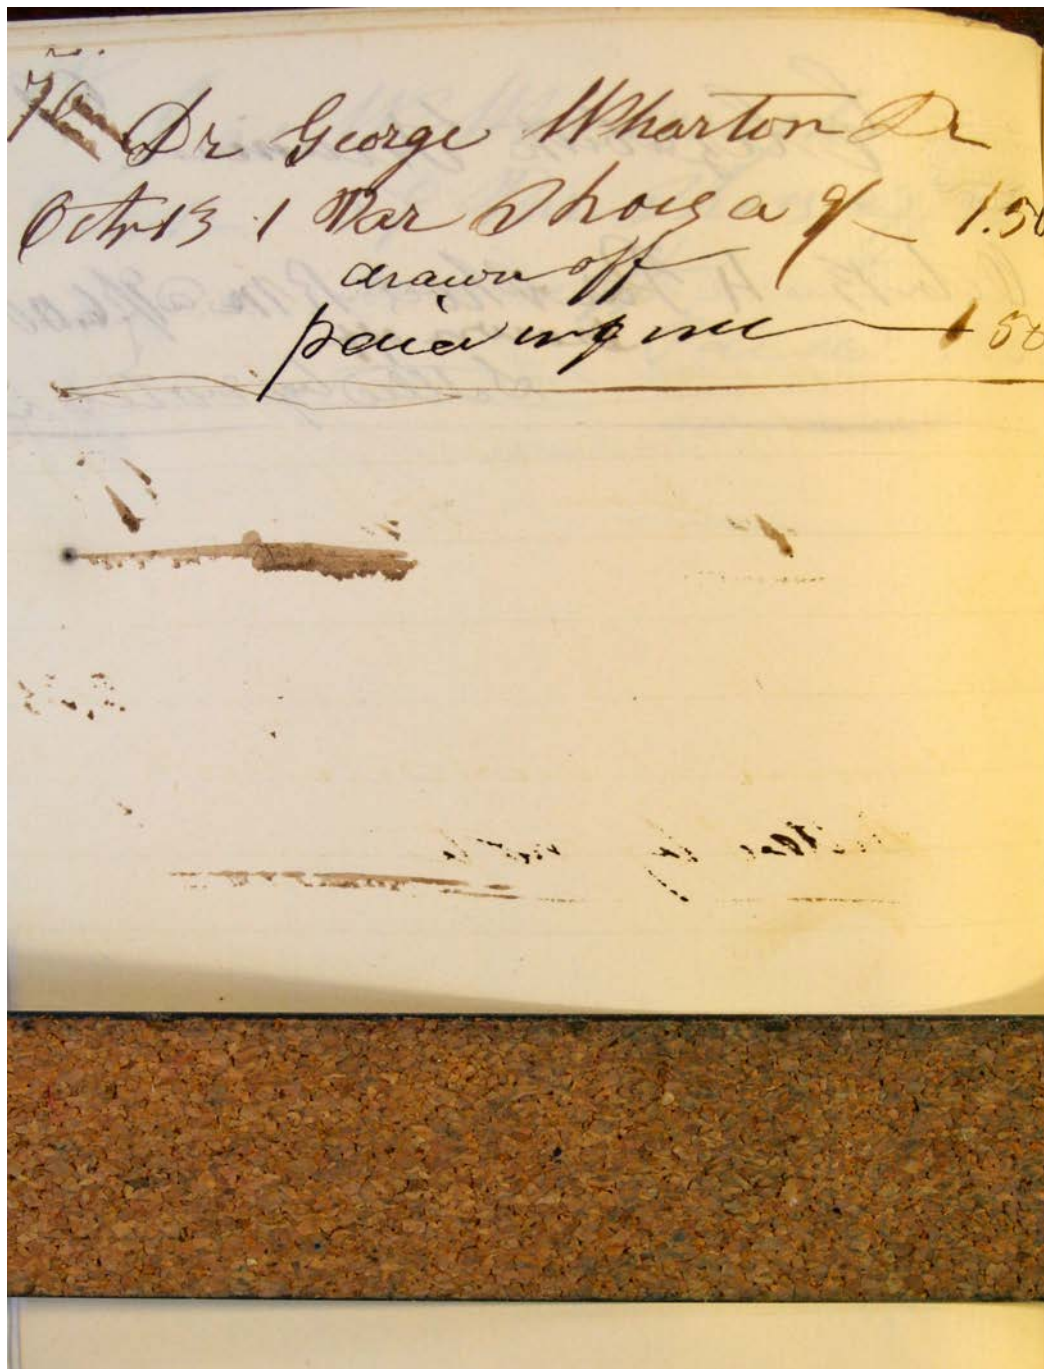 76
Dr George Wharton Dr
Octr 13 1 Par Shoes a $ 1.50
drawn off
paid 1 50